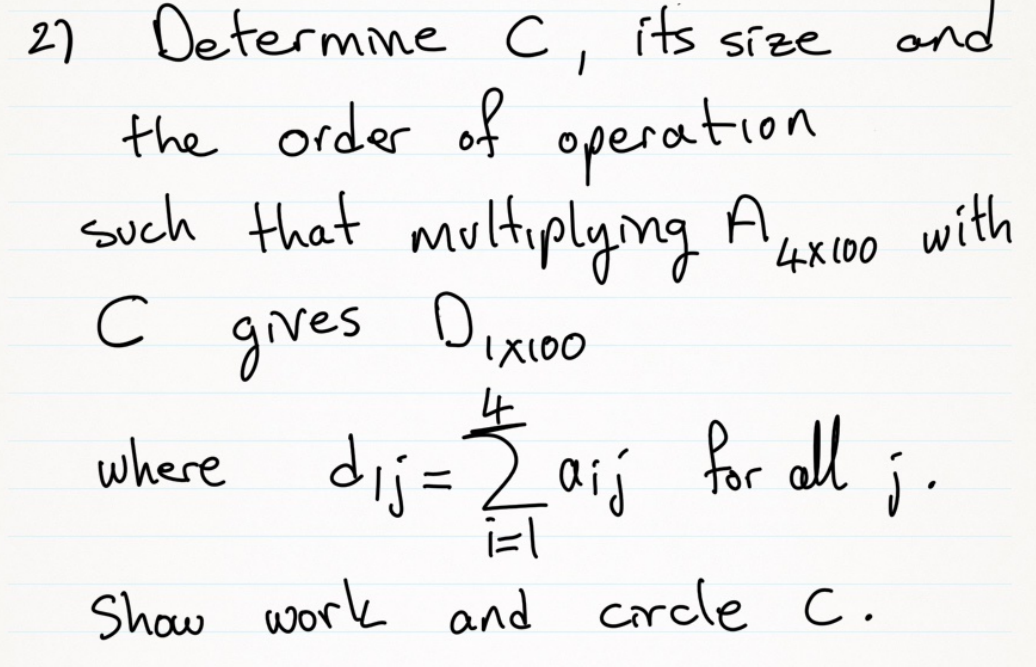 2) Determine C, its size and
the order of operation
such that multiplying A₄ₓ₁₀₀ with
C gives D₁ₓ₁₀₀
where d₁ⱼ = ∑_{i=1}^{4} aᵢⱼ for all j.
Show work and circle C.